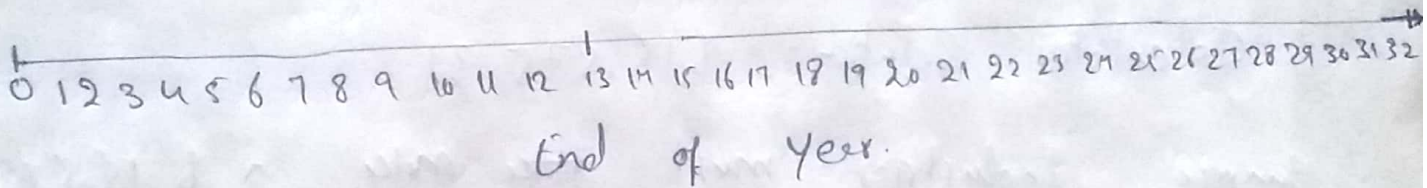 0 1 2 3 4 5 6 7 8 9 10 11 12 13 14 15 16 17 18 19 20 21 22 23 24 25 26 27 28 29 30 31 32
End of Year.